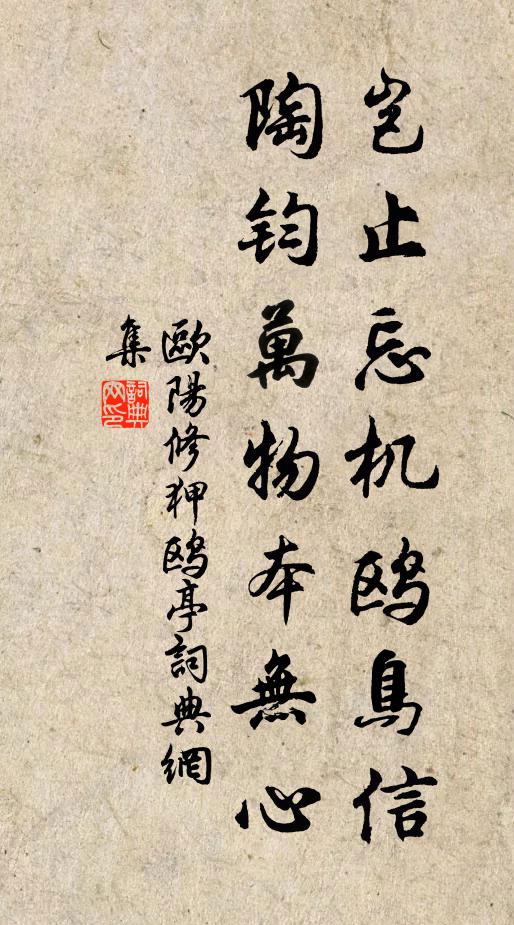 豈止忘机鸥鳥信
陶钧萬物本無心
歐陽修狎鸥亭詞典網
集
詞典
网印